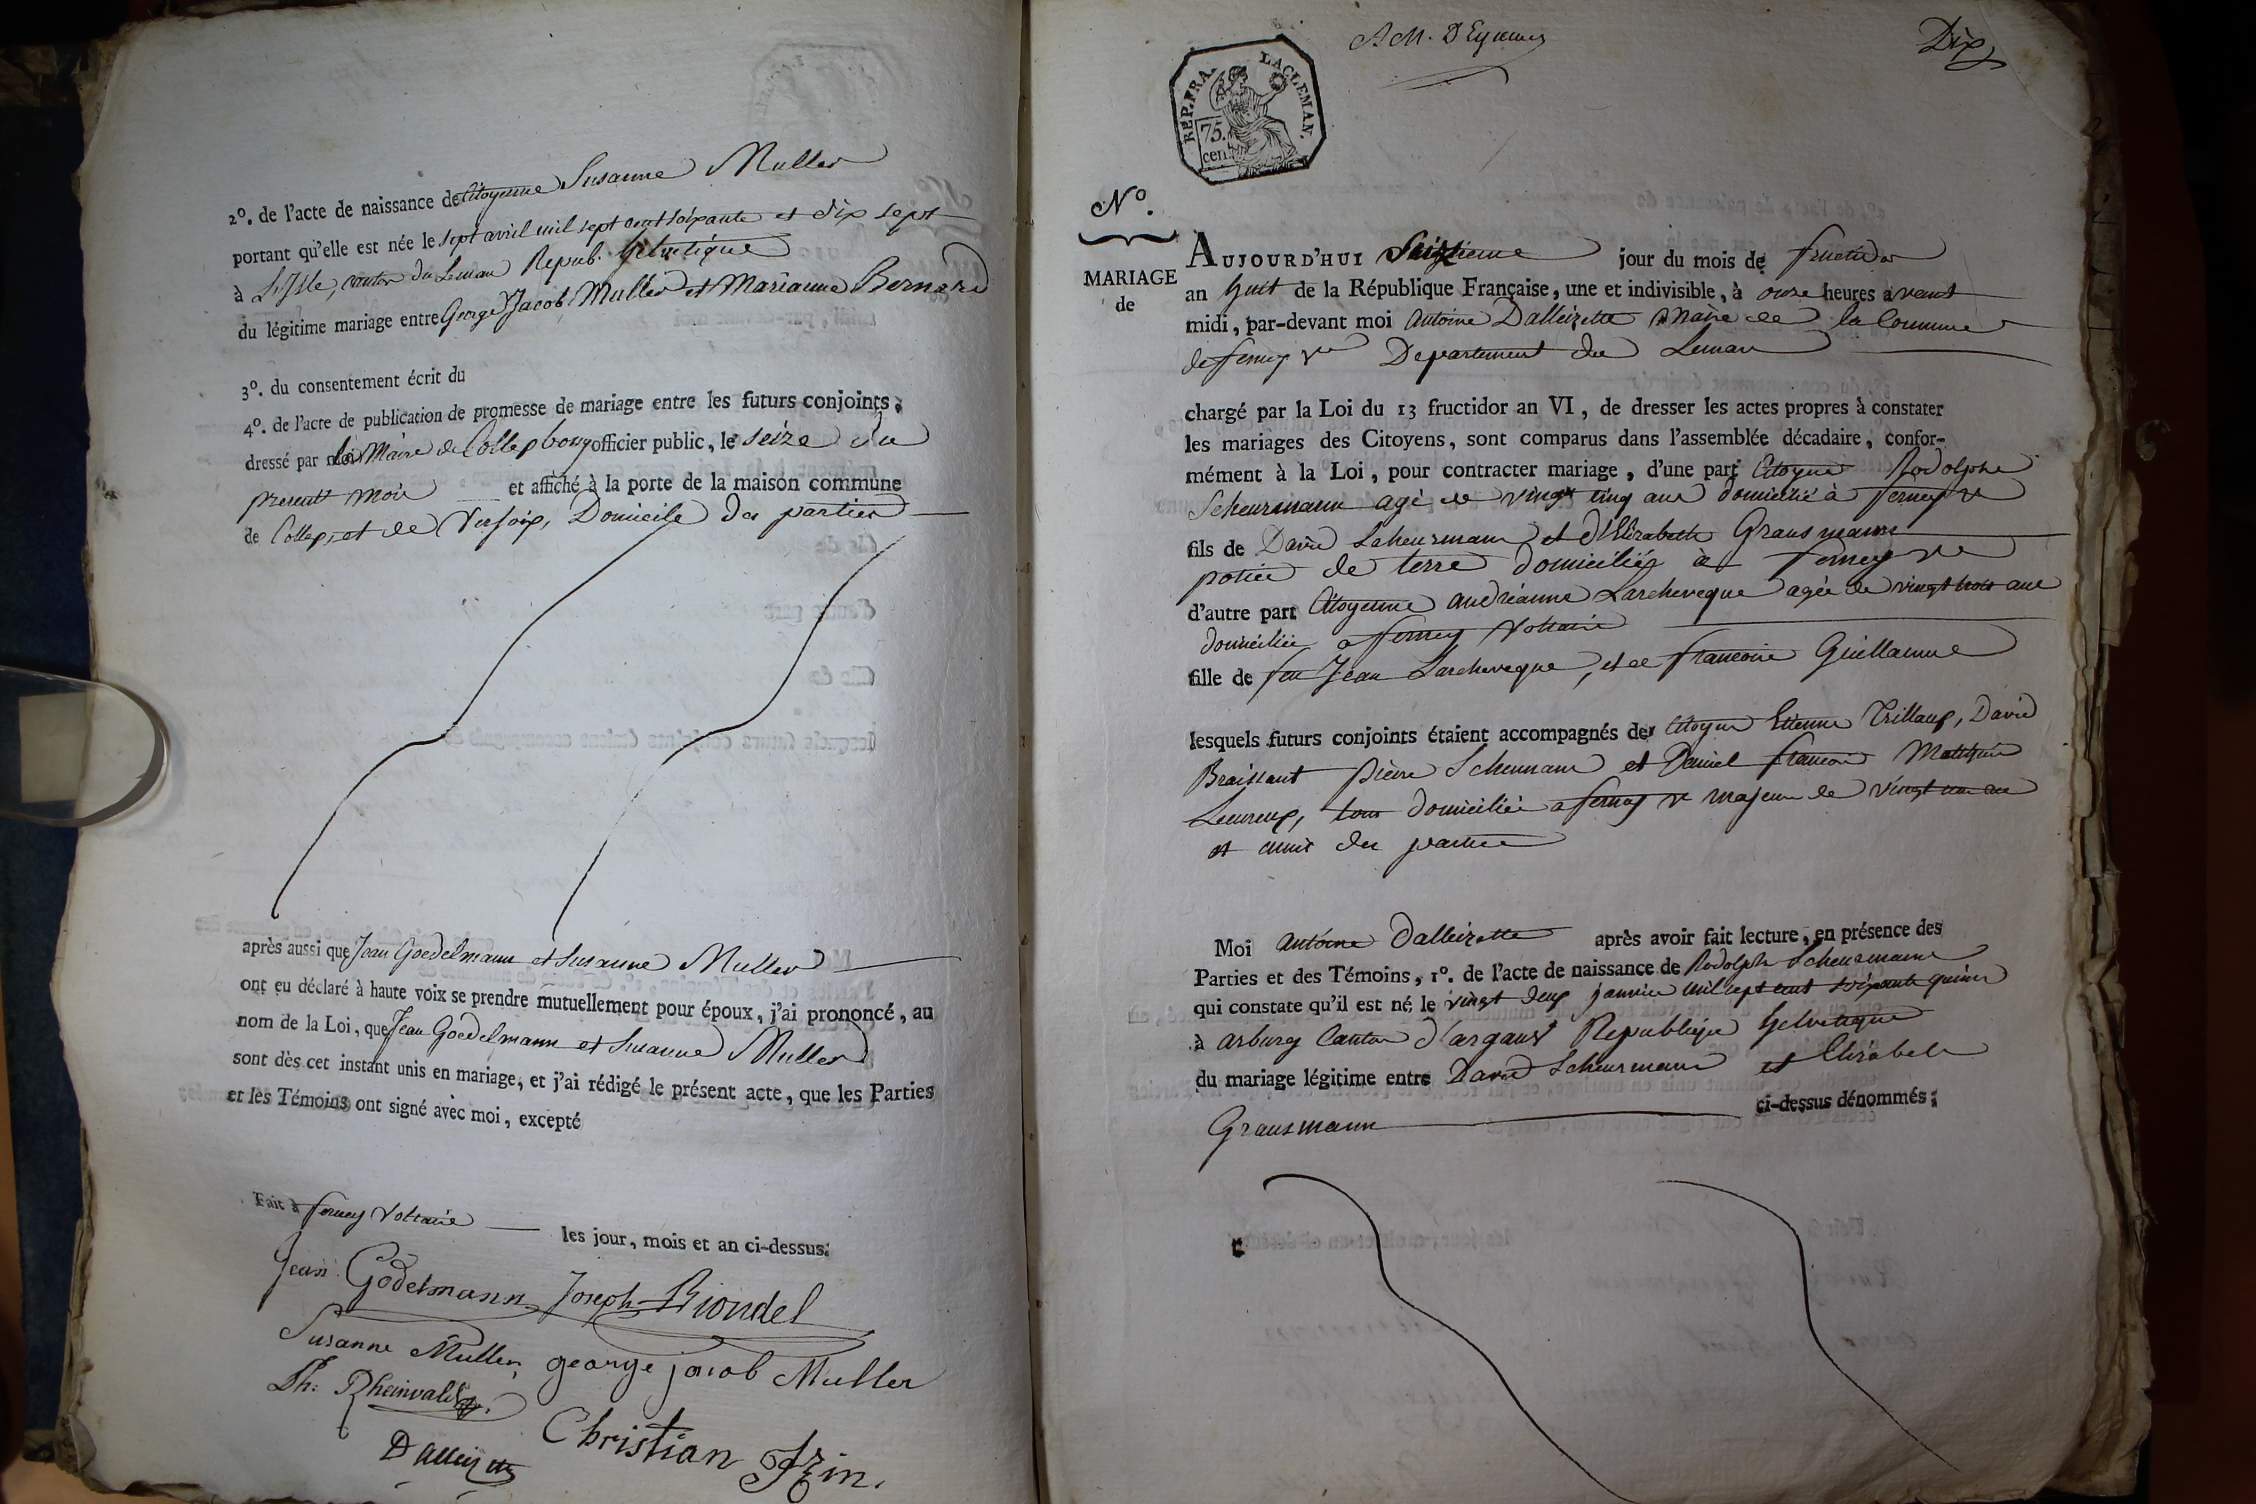 2º. de l'acte de naissance de Citoyenne Susanne Muller
portant qu'elle est née le sept avril mil sept cent soixante et dix sept
à L'Isle, canton du Leman Repub. helvetique
du légitime mariage entre George Jacob Muller et Marianne Bernard
3º. du consentement écrit du
4º. de l'acte de publication de promesse de mariage entre les futurs conjoints,
dressé par le Maire de Collex bossy officier public, le seize du
present mois et affiché à la porte de la maison commune
de Collex, et de Versoix, Domicile des parties
après aussi que Jean Goedelmann et Susanne Muller
ont eu déclaré à haute voix se prendre mutuellement pour époux, j'ai prononcé, au
nom de la Loi, que Jean Goedelmann et Susanne Muller
sont dès cet instant unis en mariage, et j'ai rédigé le présent acte, que les Parties
et les Témoins ont signé avec moi, excepté
Fait à ferney Voltaire les jour, mois et an ci-dessus.
Jean Godelmann Joseph Riondel
Susanne Muller george jacob Muller
Ph: Rheinvald
Christian Izin.
Dalleizette
Dix
REP. FRA. LAC LEMAN.
75. cen.
Nº.
MARIAGE
de
AUJOURD'HUI Seizieme jour du mois de fructidor
an huit de la République Française, une et indivisible, à onze heures avant
midi, par-devant moi Antoine Dalleizette Maire de la Commune
de ferney Vre Departement du Leman
chargé par la Loi du 13 fructidor an VI, de dresser les actes propres à constater
les mariages des Citoyens, sont comparus dans l'assemblée décadaire, confor-
mément à la Loi, pour contracter mariage, d'une part Citoyen Rodolphe
Scheurmann agé de vingt cinq ans domicilié à ferney Vre
fils de David Scheurmann et d'Elizabeth Gransmann
potier de terre domiciliés à ferney Vre
d'autre part Citoyenne Andréanne Larcheveque agée de vingt trois ans
domiciliée a ferney Voltaire
fille de feu Jean Larcheveque, et de francoise Guillaume
lesquels futurs conjoints étaient accompagnés des Citoyens Etienne Trillaux, David
Braissant pierre Scheurmann et Daniel francois Matthieu
Lecureux, tous domiciliés a ferney Vre majeurs de vingt un ans
et amis des parties
Moi Antoine Dalleizette après avoir fait lecture, en présence des
Parties et des Témoins, 1º. de l'acte de naissance de Rodolphe Scheurmann
qui constate qu'il est né, le vingt deux janvier mil sept cent soixante quinze
à arburg Canton d'argauw Republique helvetique
du mariage légitime entre David Scheurmann et Elizabeth
Gransmann ci-dessus dénommés;